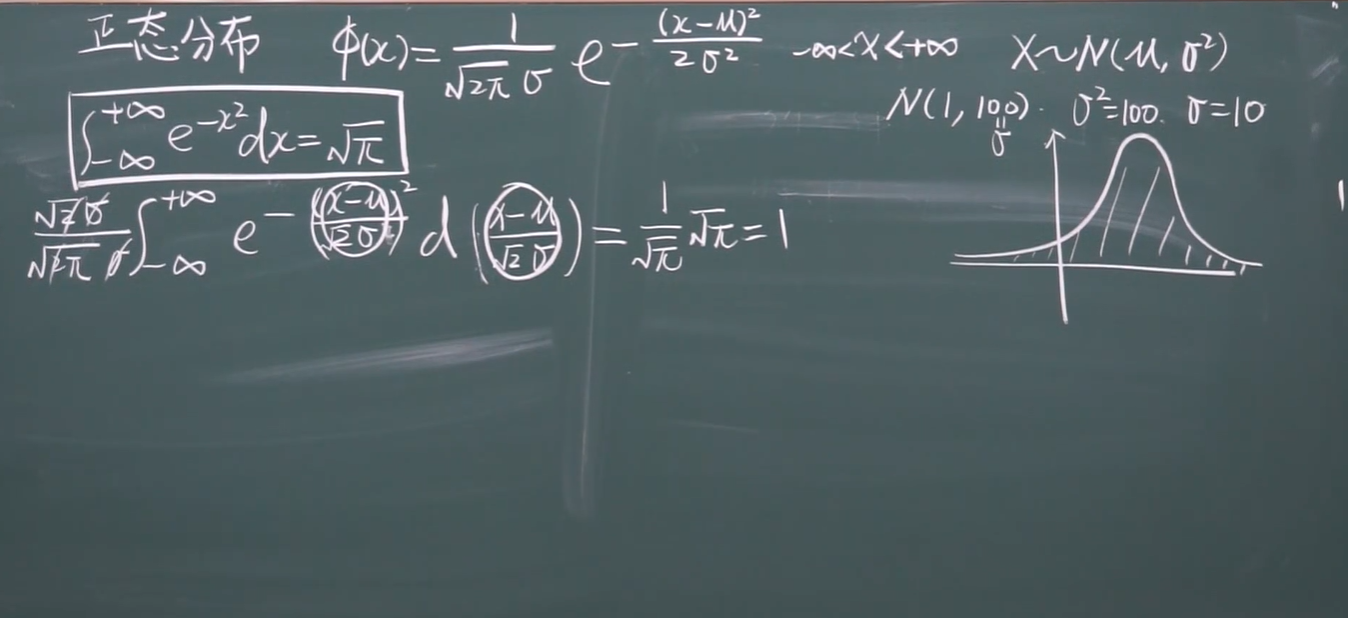 正态分布 φ(x)=1/(√2π σ) e^-(x-μ)²/(2σ²) -∞<x<+∞ X~N(μ, σ²)
N(1, 100). σ²=100. σ=10
σ
∫_-∞^+∞ e^-x² dx=√π
√2σ/(√2π σ) ∫_-∞^+∞ e^-((x-μ)/(√2 σ))² d((x-μ)/(√2 σ)) = 1/√π √π=1